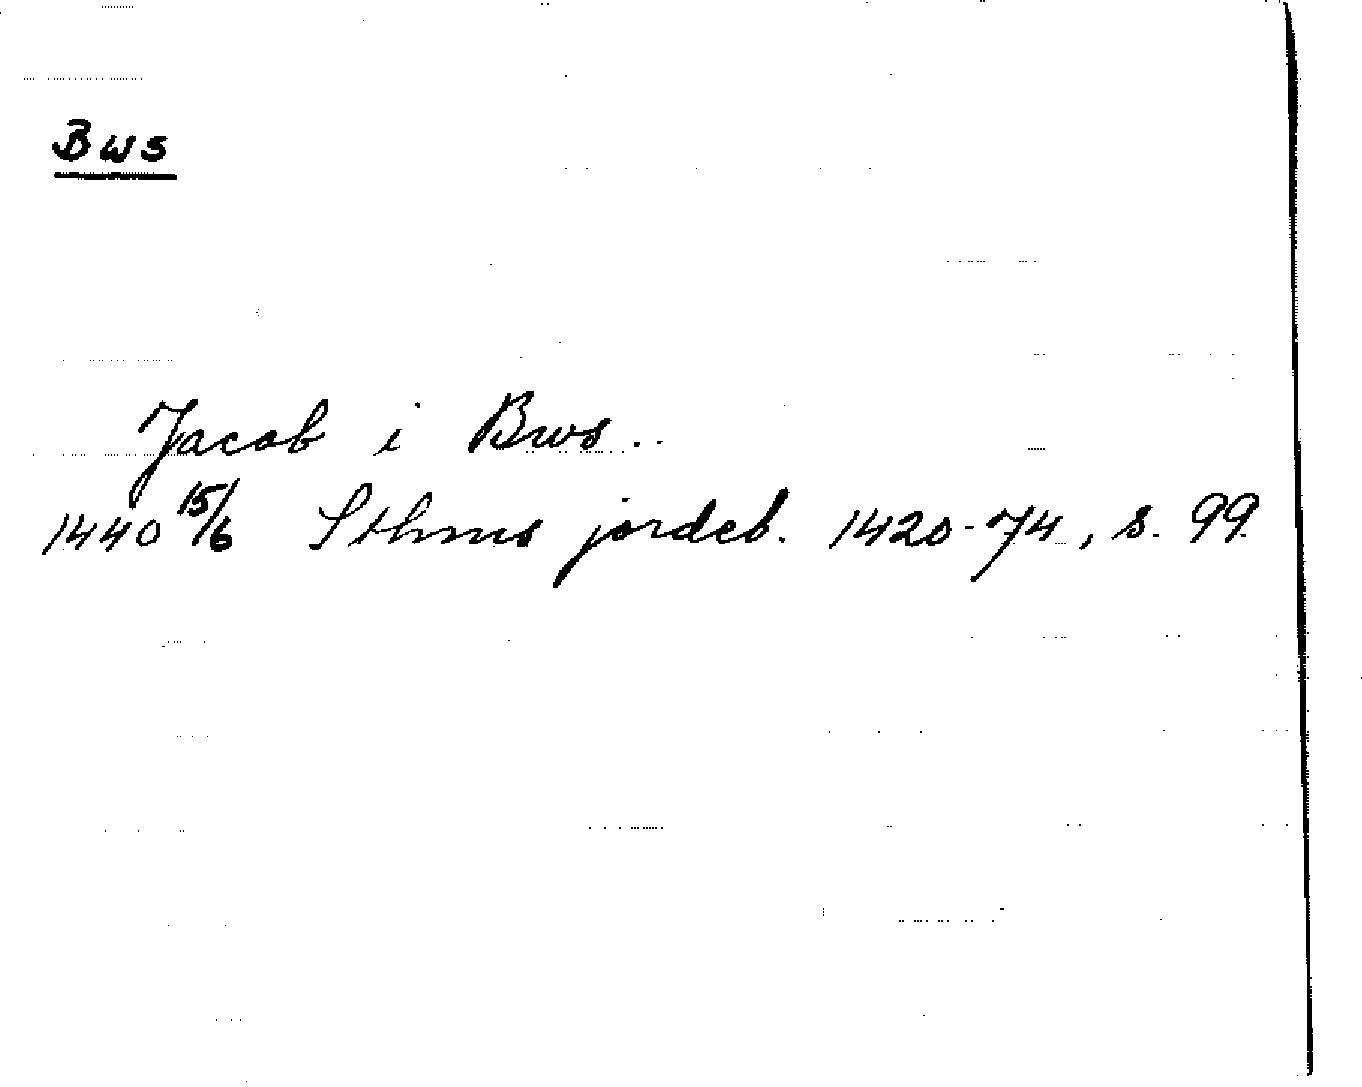 Bws
Jacob i Bws..
1440 15/6 Sthms jordeb. 1420-74, s. 99.